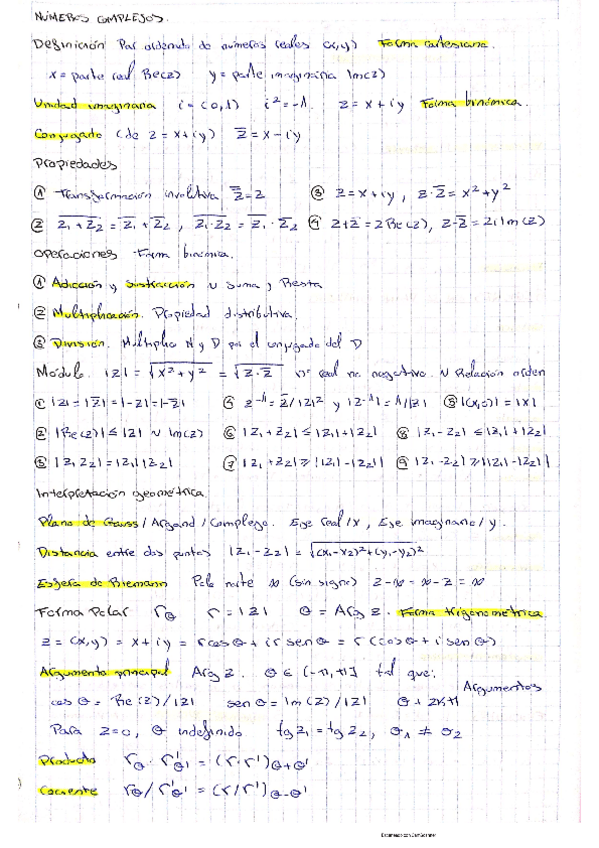 NÚMEROS COMPLEJOS.
Definición Par ordenado de números reales (x,y) Forma cartesiana.
x = parte real Re(z) y = parte imaginaria Im(z)
Unidad imaginaria i = (0,1) i² = -1. z = x + iy Forma binómica.
Conjugado (de z = x+iy) z̅ = x - iy
Propiedades
① Transformación involutiva z̿ = z ③ z = x+iy, z·z̅ = x² + y²
② \overline{z₁+z₂} = z̅₁ + z̅₂, \overline{z₁·z₂} = z̅₁ · z̅₂ ④ z+z̅ = 2Re(z), z-z̅ = 2i Im(z)
Operaciones Forma binómica.
① Adicción y sustracción ~ Suma y Resta
② Multiplicación. Propiedad distributiva.
③ División. Multiplico N y D por el conjugado del D
Módulo. |z| = √(x² + y²) = √(z·z̅) nº real no negativo. ~ Relación orden
① |z| = |z̅| = |-z| = |-z̅| ④ z⁻¹ = z̅/|z|² y |z⁻¹| = 1/|z| ⑤ |(x,0)| = |x|
② |Re(z)| ≤ |z| ~ Im(z) ⑥ |z₁ + z₂| ≤ |z₁| + |z₂| ⑧ |z₁ - z₂| ≤ |z₁| + |z₂|
③ |z₁ z₂| = |z₁| |z₂| ⑦ |z₁ + z₂| ≥ ||z₁| - |z₂|| ⑨ |z₁ - z₂| ≥ ||z₁| - |z₂||
Interpretación geométrica
Plano de Gauss / Argand / Complejo. Eje real / x, Eje imaginario / y.
Distancia entre dos puntos |z₁ - z₂| = √((x₁-x₂)² + (y₁-y₂)²)
Esfera de Riemann Polo norte ∞ (sin signo) z - ∞ = ∞ - z = ∞
Forma Polar r_θ r = |z| θ = Arg z. Forma trigonométrica.
z = (x,y) = x + iy = r cos θ + i r sen θ = r (cos θ + i sen θ)
Argumento principal Arg z. θ ∈ (-π, π] tal que:
cos θ = Re(z)/|z| sen θ = Im(z)/|z| Argumentos θ + 2kπ
Para z=0, θ indefinido tg z₁ = tg z₂, θ₁ ≠ θ₂
Producto r_θ · r'_θ' = (r·r')_θ+θ'
Cociente r_θ / r'_θ' = (r/r')_θ-θ'